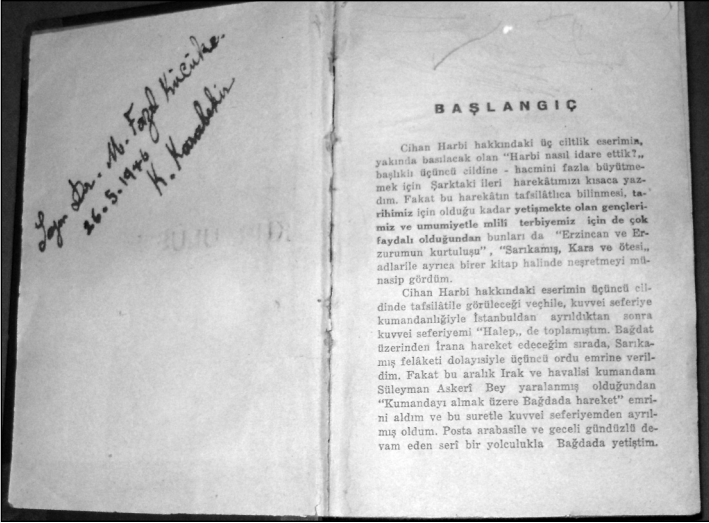 Sayın Dr. M. Fazıl Küçük'e.
26.5.1946
K. Karabekir
BAŞLANGIÇ
Cihan Harbi hakkındaki üç ciltlik eserimin,
yakında basılacak olan "Harbi nasıl idare ettik?„
başlıklı üçüncü cildine - hacmini fazla büyütme-
mek için Şarktaki ileri harekâtımızı kısaca yaz-
dım. Fakat bu harekâtın tafsilâtlıca bilinmesi, ta-
rihimiz için olduğu kadar yetişmekte olan gençleri-
miz ve umumiyetle mlili terbiyemiz için de çok
faydalı olduğundan bunları da "Erzincan ve Er-
zurumun kurtuluşu", "Sarıkamış, Kars ve ötesi„
adlarile ayrıca birer kitap halinde neşretmeyi mü-
nasip gördüm.
Cihan Harbi hakkındaki eserimin üçüncü cil-
dinde tafsilâtile görüleceği veçhile, kuvvei seferiye
kumandanlığiyle İstanbuldan ayrıldıktan sonra
kuvvei seferiyemi "Halep„ de toplamıştım. Bağdat
üzerinden İrana hareket edeceğim sırada, Sarıka-
mış felâketi dolayısiyle üçüncü ordu emrine veril-
dim. Fakat bu aralık Irak ve havalisi kumandanı
Süleyman Askerî Bey yaralanmış olduğundan
"Kumandayı almak üzere Bağdada hareket" emri-
ni aldım ve bu suretle kuvvei seferiyemden ayrıl-
mış oldum. Posta arabasile ve geceli gündüzlü de-
vam eden serî bir yolculukla Bağdada yetiştim.